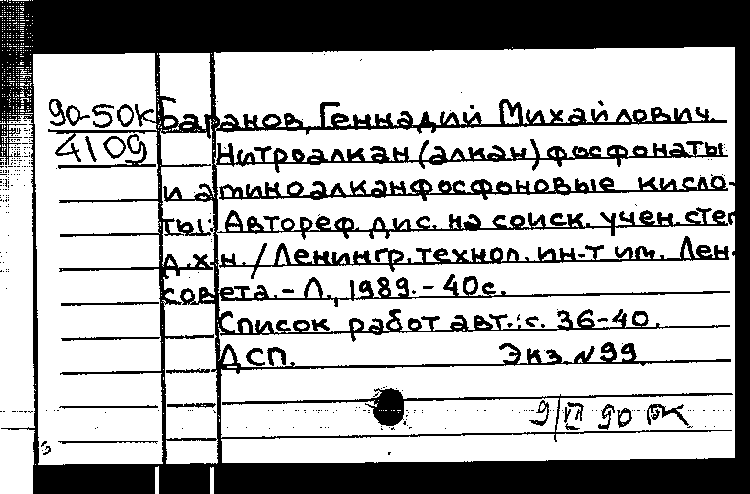 90-50К Баранов, Геннадий Михайлович.
4109 Нитроалкан(алкан)фосфонаты
и аминоалканфосфоновые кисло-
ты: Автореф. дис. на соиск. учен. степ
д.х.н. / Ленингр. технол. ин-т им. Лен-
совета. - Л., 1989. - 40с.
Список работ авт.: с. 36-40.
ДСП. Экз. N 99.
90